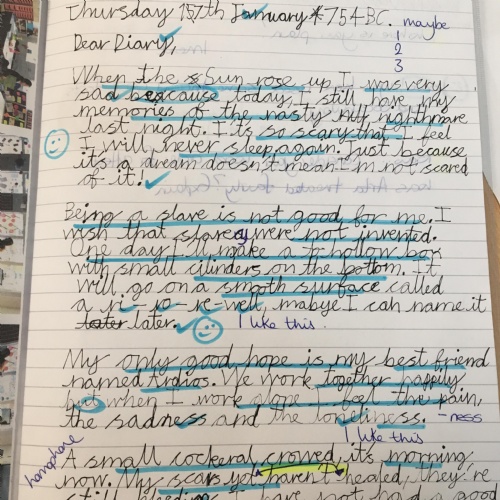 Thursday 157th January 754 BC. maybe
1
2
3
Dear Diary,
When the Sun rose up I was very
sad because today, I still have my
memories of the nasty nightmare
last night. It's so scary that I feel
I will never sleep again. Just because
it's a dream doesn't mean I'm not scared
of it!
Being a slave is not good for me. I
wish that slavery were not invented.
One day I'll make a hollow box
with small cilinders on the bottom. It
will go on a smooth surface called
a ri-ro-re-well, mabye I can name it
later later. I like this.
My only good hope is my best friend
named Ardios. We work together happily
but when I work alone I feel the pain,
the sadness and the loneliness. -ness
I like this
homophone
A small cockeral crowed, it's morning
now. My scars yet haren't healed, they're
still
have not had a good